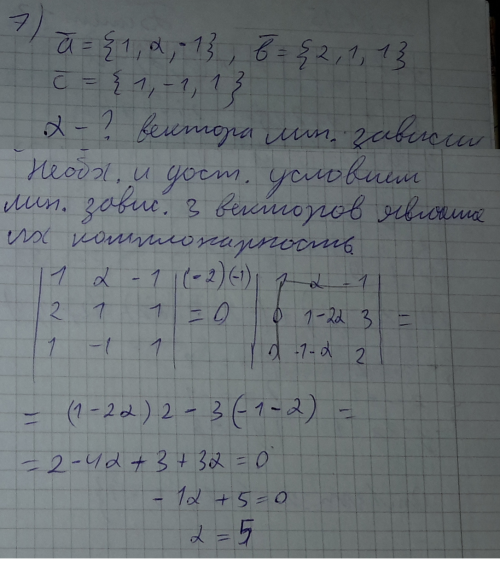 7)
a̅ = {1, α, -1}, b̅ = {2, 1, 1}
c̅ = {1, -1, 1}
α - ? вектора лин. зависим
Необх. и дост. условием
лин. завис. 3 векторов является
их компланарность
| 1 α -1 | (-2)(-1) | 1 α -1 |
| 2 1 1 | = 0 | 0 1-2α 3 | =
| 1 -1 1 | | 0 -1-α 2 |
= (1-2α)2 - 3(-1-α) =
= 2-4α+3+3α=0
-1α+5=0
α = 5